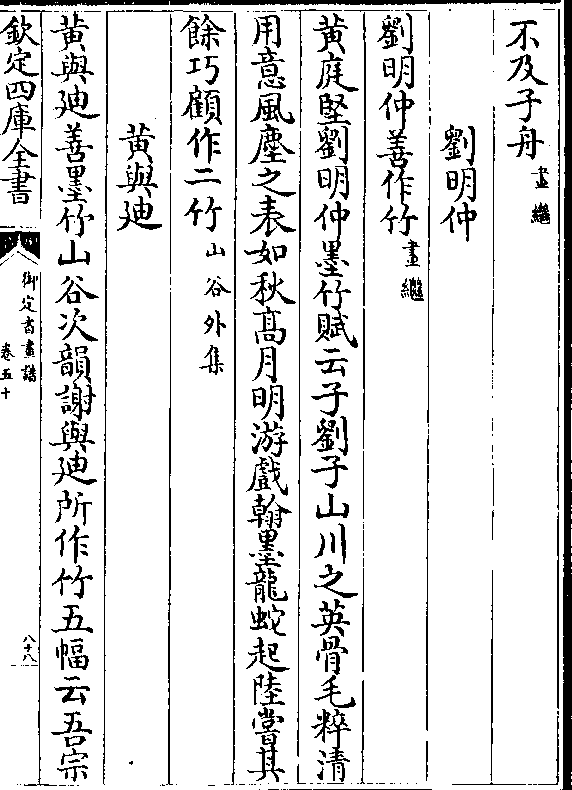 不及子舟畫繼
劉明仲
劉明仲善作竹畫繼
黄庭堅劉明仲墨竹賦云子劉子山川之英骨毛粹清
用意風塵之表如秋髙月明游戲翰墨龍蛇起陸嘗其
餘巧顧作二竹山谷外集
黄與廸
黄與廸善墨竹山谷次韻謝與廸所作竹五幅云吾宗
欽定四庫全書
御定書畫譜
卷五十
八十八